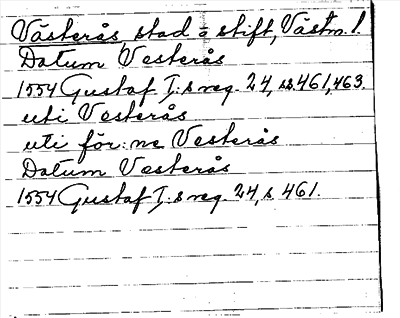 Västerås, stad o stift, Västm. l.
Datum Vesterås
1554 Gustaf I:s reg. 24, ss. 461, 463.
uti Vesterås
uti för:ne Vesterås
Datum Vesterås
1554 Gustaf I:s reg. 24, s. 461.